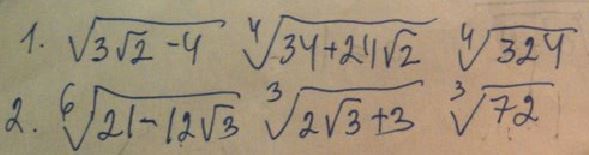 1. √(3√2 - 4) ⁴√(34+24√2) ⁴√324
2. ⁶√(21-12√3) ³√(2√3+3) ³√72